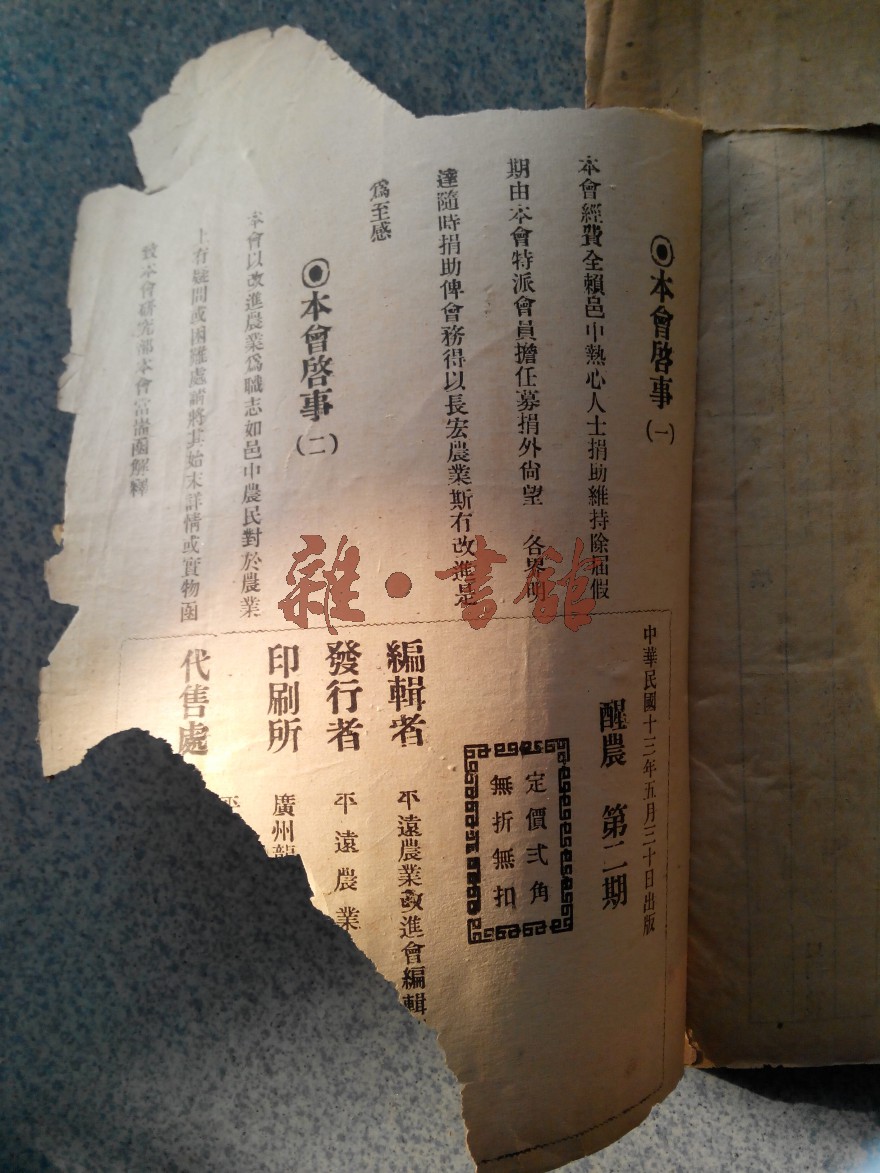 ◉本會啓事(一)
本會經費全賴邑中熱心人士捐助維持除屆假
期由本會特派會員擔任募捐外尙望 各界明
達隨時捐助俾會務得以長宏農業斯有改進是
爲至感
◉本會啓事(二)
本會以改進農業爲職志如邑中農民對於農業
上有疑問或困難處請將其始末詳情或實物函
致本會研究部本會當詳函解釋
中華民國十三年五月三十日出版
醒農 第二期
定價弍角
無折無扣
編輯者 平遠農業改進會編輯
發行者 平遠農業
印刷所 廣州龍
代售處 平
雜·書館